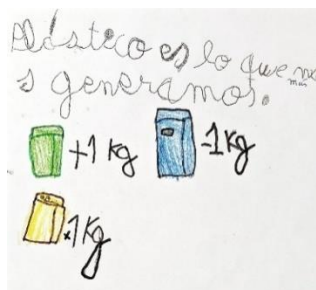 Plástico es lo que más
generamos.
+1 kg
-1 kg
+1 Kg